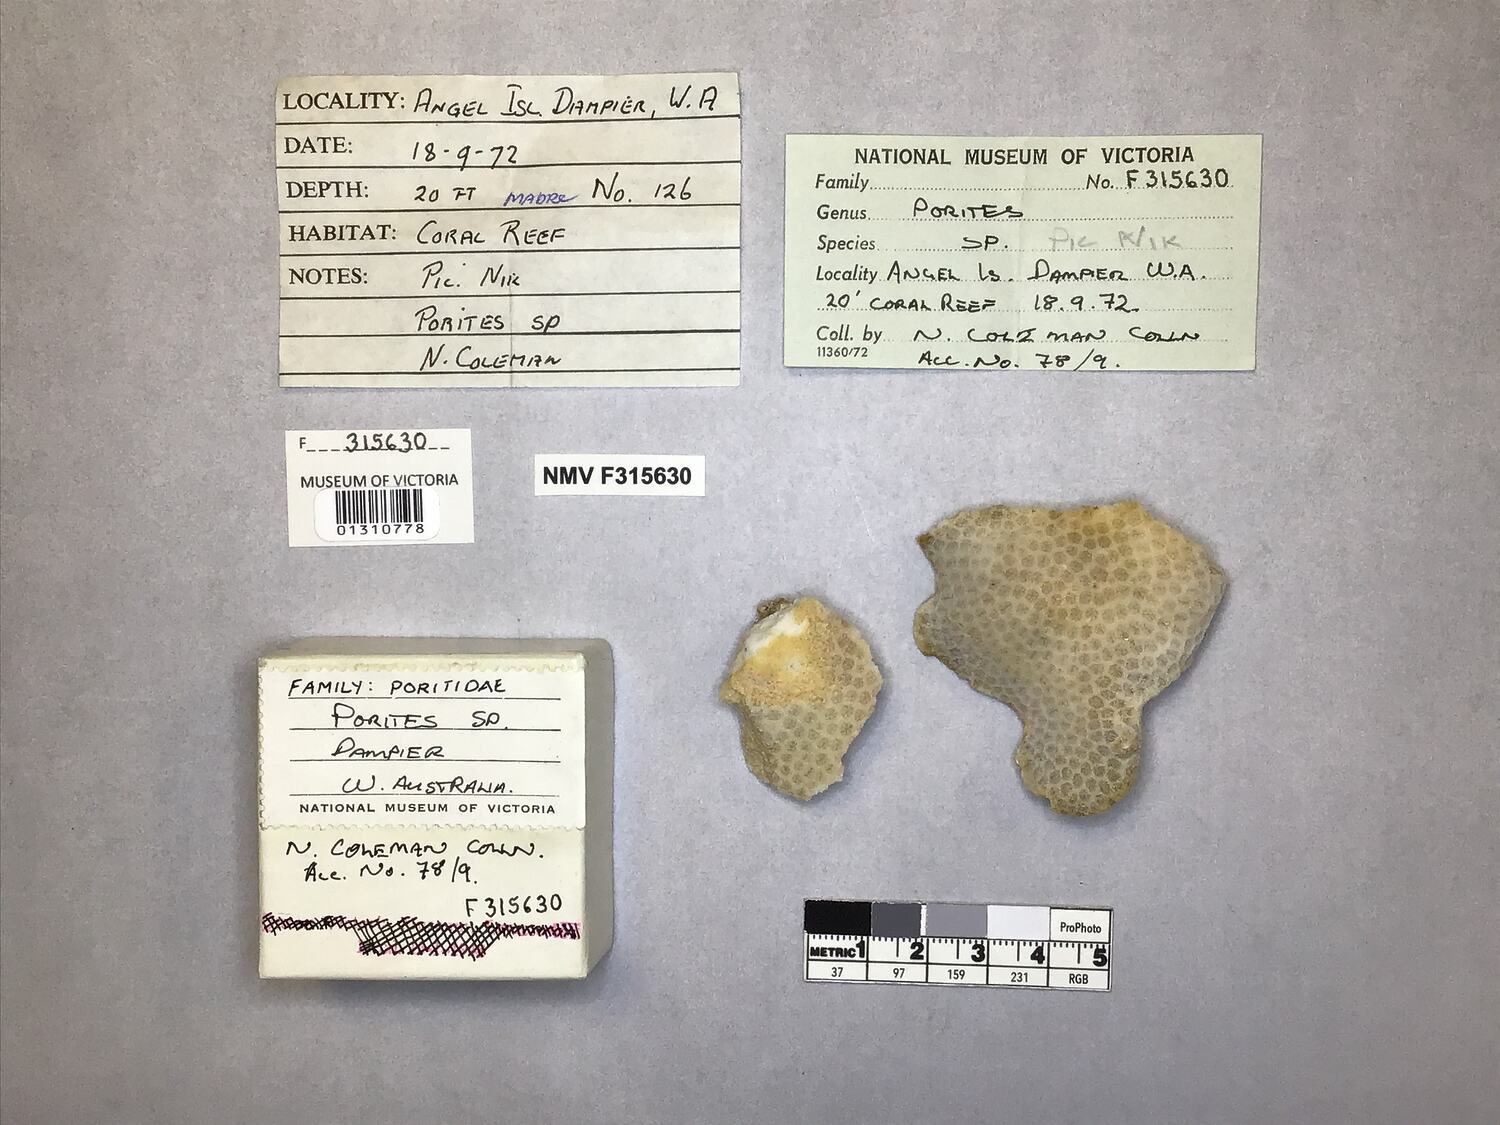 LOCALITY: ANGEL ISL. DAMPIER, W.A
DATE: 18-9-72
DEPTH: 20 FT MADRE No. 126
HABITAT: CORAL REEF
NOTES: PIC. NIK
PORITES SP
N. COLEMAN
NATIONAL MUSEUM OF VICTORIA
Family No. F315630
Genus PORITES
Species SP. PIC NIK
Locality ANGEL IS. DAMPIER W.A.
20' CORAL REEF 18.9.72.
Coll. by N. COLEMAN COLLN
11360/72 ACC. No. 78/9.
F 315630
MUSEUM OF VICTORIA
01310778
NMV F315630
FAMILY: PORITIDAE
PORITES SP.
DAMPIER
W. AUSTRALIA.
NATIONAL MUSEUM OF VICTORIA
N. COLEMAN COLLN.
Acc. No. 78/9.
F315630
ProPhoto
METRIC 1 2 3 4 5
37 97 159 231 RGB